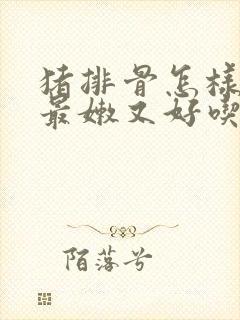 猪排骨怎样
最嫩又好喫
陌落兮